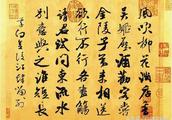 風吹柳花滿店香
吳姬壓酒勸客嘗
金陵子弟來相送
欲行不行各盡觴
請君試問東流水
別意與之誰短長